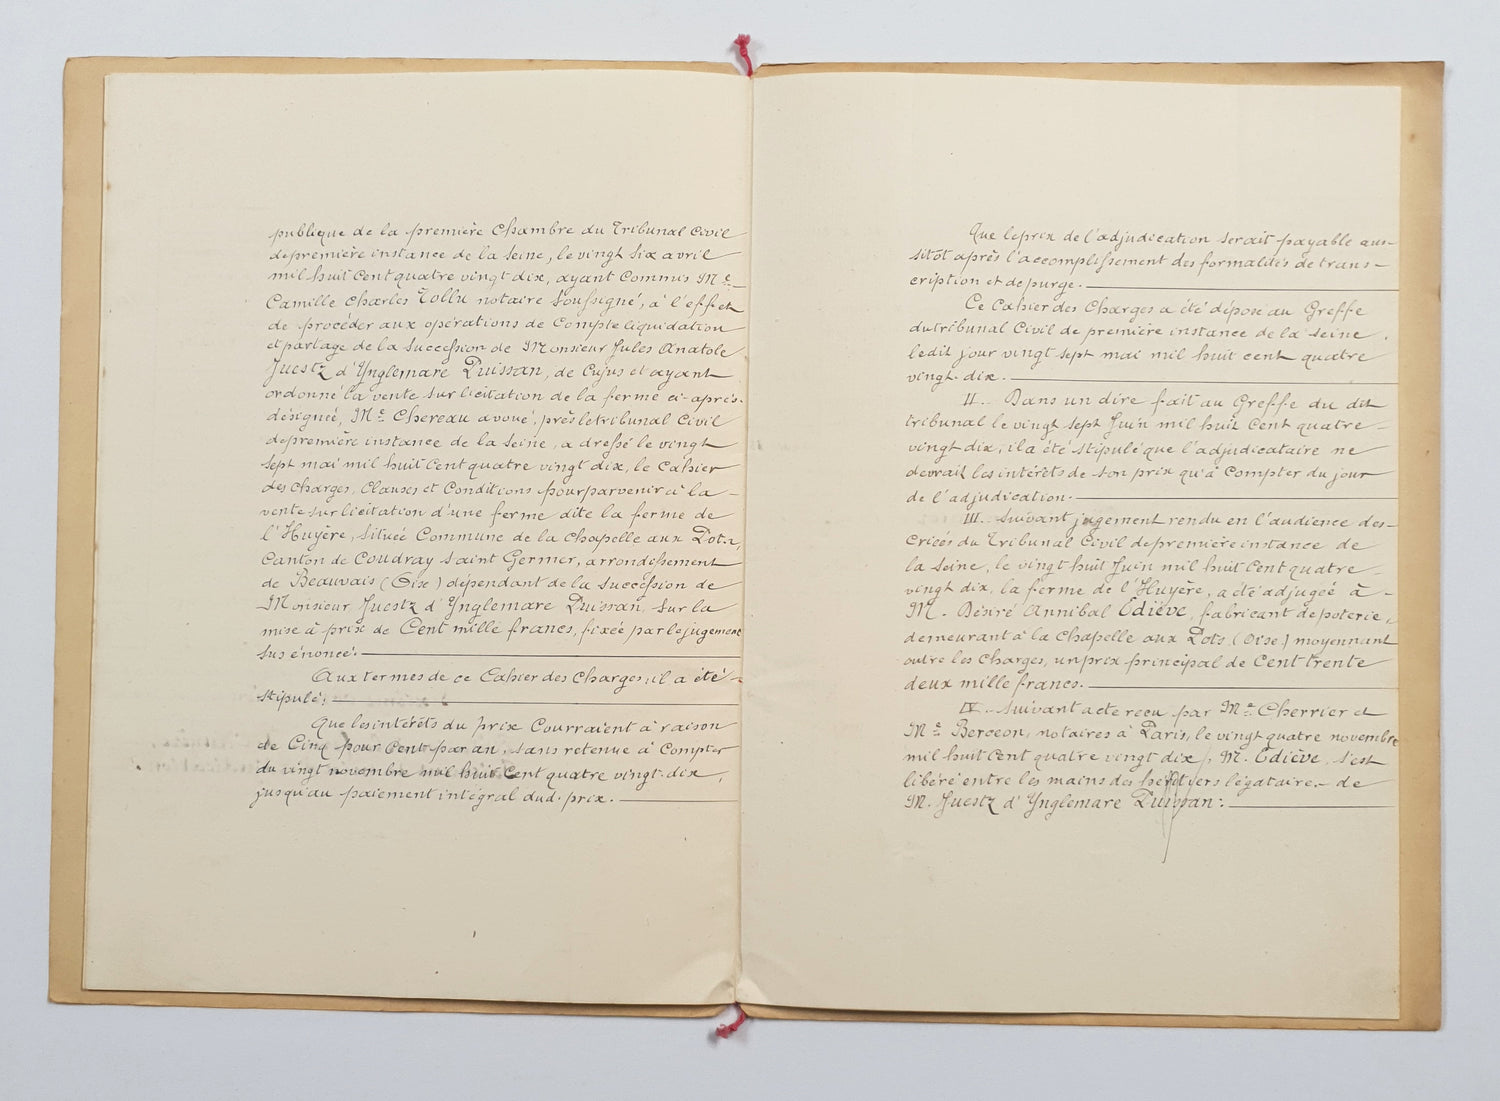 publique de la première Chambre du Tribunal Civil
de première instance de la Seine, le vingt six avril
mil huit Cent quatre vingt dix, ayant Commis Me
Camille Charles Tollu notaire soussigné, à l'effet
de procéder aux opérations de Compte liquidation
et partage de la succession de Monsieur Jules Anatole
Juestz d'Ynglemare Puissan, de Cujus et ayant
ordonné la vente sur licitation de la ferme ci-après
désignée, Me Chereau avoué, près le tribunal Civil
de première instance de la Seine, a dressé le vingt
sept mai mil huit Cent quatre vingt dix, le Cahier
des charges, Clauses et Conditions pour parvenir à la
vente sur licitation d'une ferme dite la ferme de
l'Huyère, située Commune de la Chapelle aux Pots,
Canton de Coudray Saint Germer, arrondissement
de Beauvais (Oise) dépendant de la succession de
Monsieur Juestz d'Ynglemare Puissan, sur la
mise à prix de Cent mille francs, fixée par le jugement
sus énoncé.
Aux termes de ce Cahier des Charges, il a été
stipulé:
Que les intérêts du prix Courraient à raison
de Cinq pour Cent par an, sans retenue à Compter
du vingt novembre mil huit Cent quatre vingt-dix,
jusqu'au paiement intégral dud. prix.
Que le prix de l'adjudication serait payable aus-
sitôt après l'accomplissement des formalités de trans-
cription et de purge.
Ce Cahier des Charges a été déposé au Greffe
du tribunal Civil de première instance de la Seine
ledit jour vingt sept mai mil huit cent quatre
vingt-dix.
II. Dans un dire fait au Greffe du dit
tribunal le vingt sept Juin mil huit Cent quatre
vingt dix, il a été stipulé que l'adjudicataire ne
devrait les intérêts de son prix qu'à Compter du jour
de l'adjudication.
III. Suivant jugement rendu en l'audience des
Criées du Tribunal Civil de première instance de
la Seine, le vingt huit Juin mil huit Cent quatre
vingt dix, la ferme de l'Huyère, a été adjugée à
M. Désiré Annibal Ediève, fabricant de poterie,
demeurant à la Chapelle aux Pots (Oise) moyennant
outre les Charges, un prix principal de Cent trente
deux mille francs.
IV. Suivant acte reçu par Me Cherrier et
Me Berceon, notaires à Paris, le vingt quatre novembre
mil huit Cent quatre vingt dix, M. Ediève, s'est
libéré entre les mains des légataires de
M. Juestz d'Ynglemare Puissan: